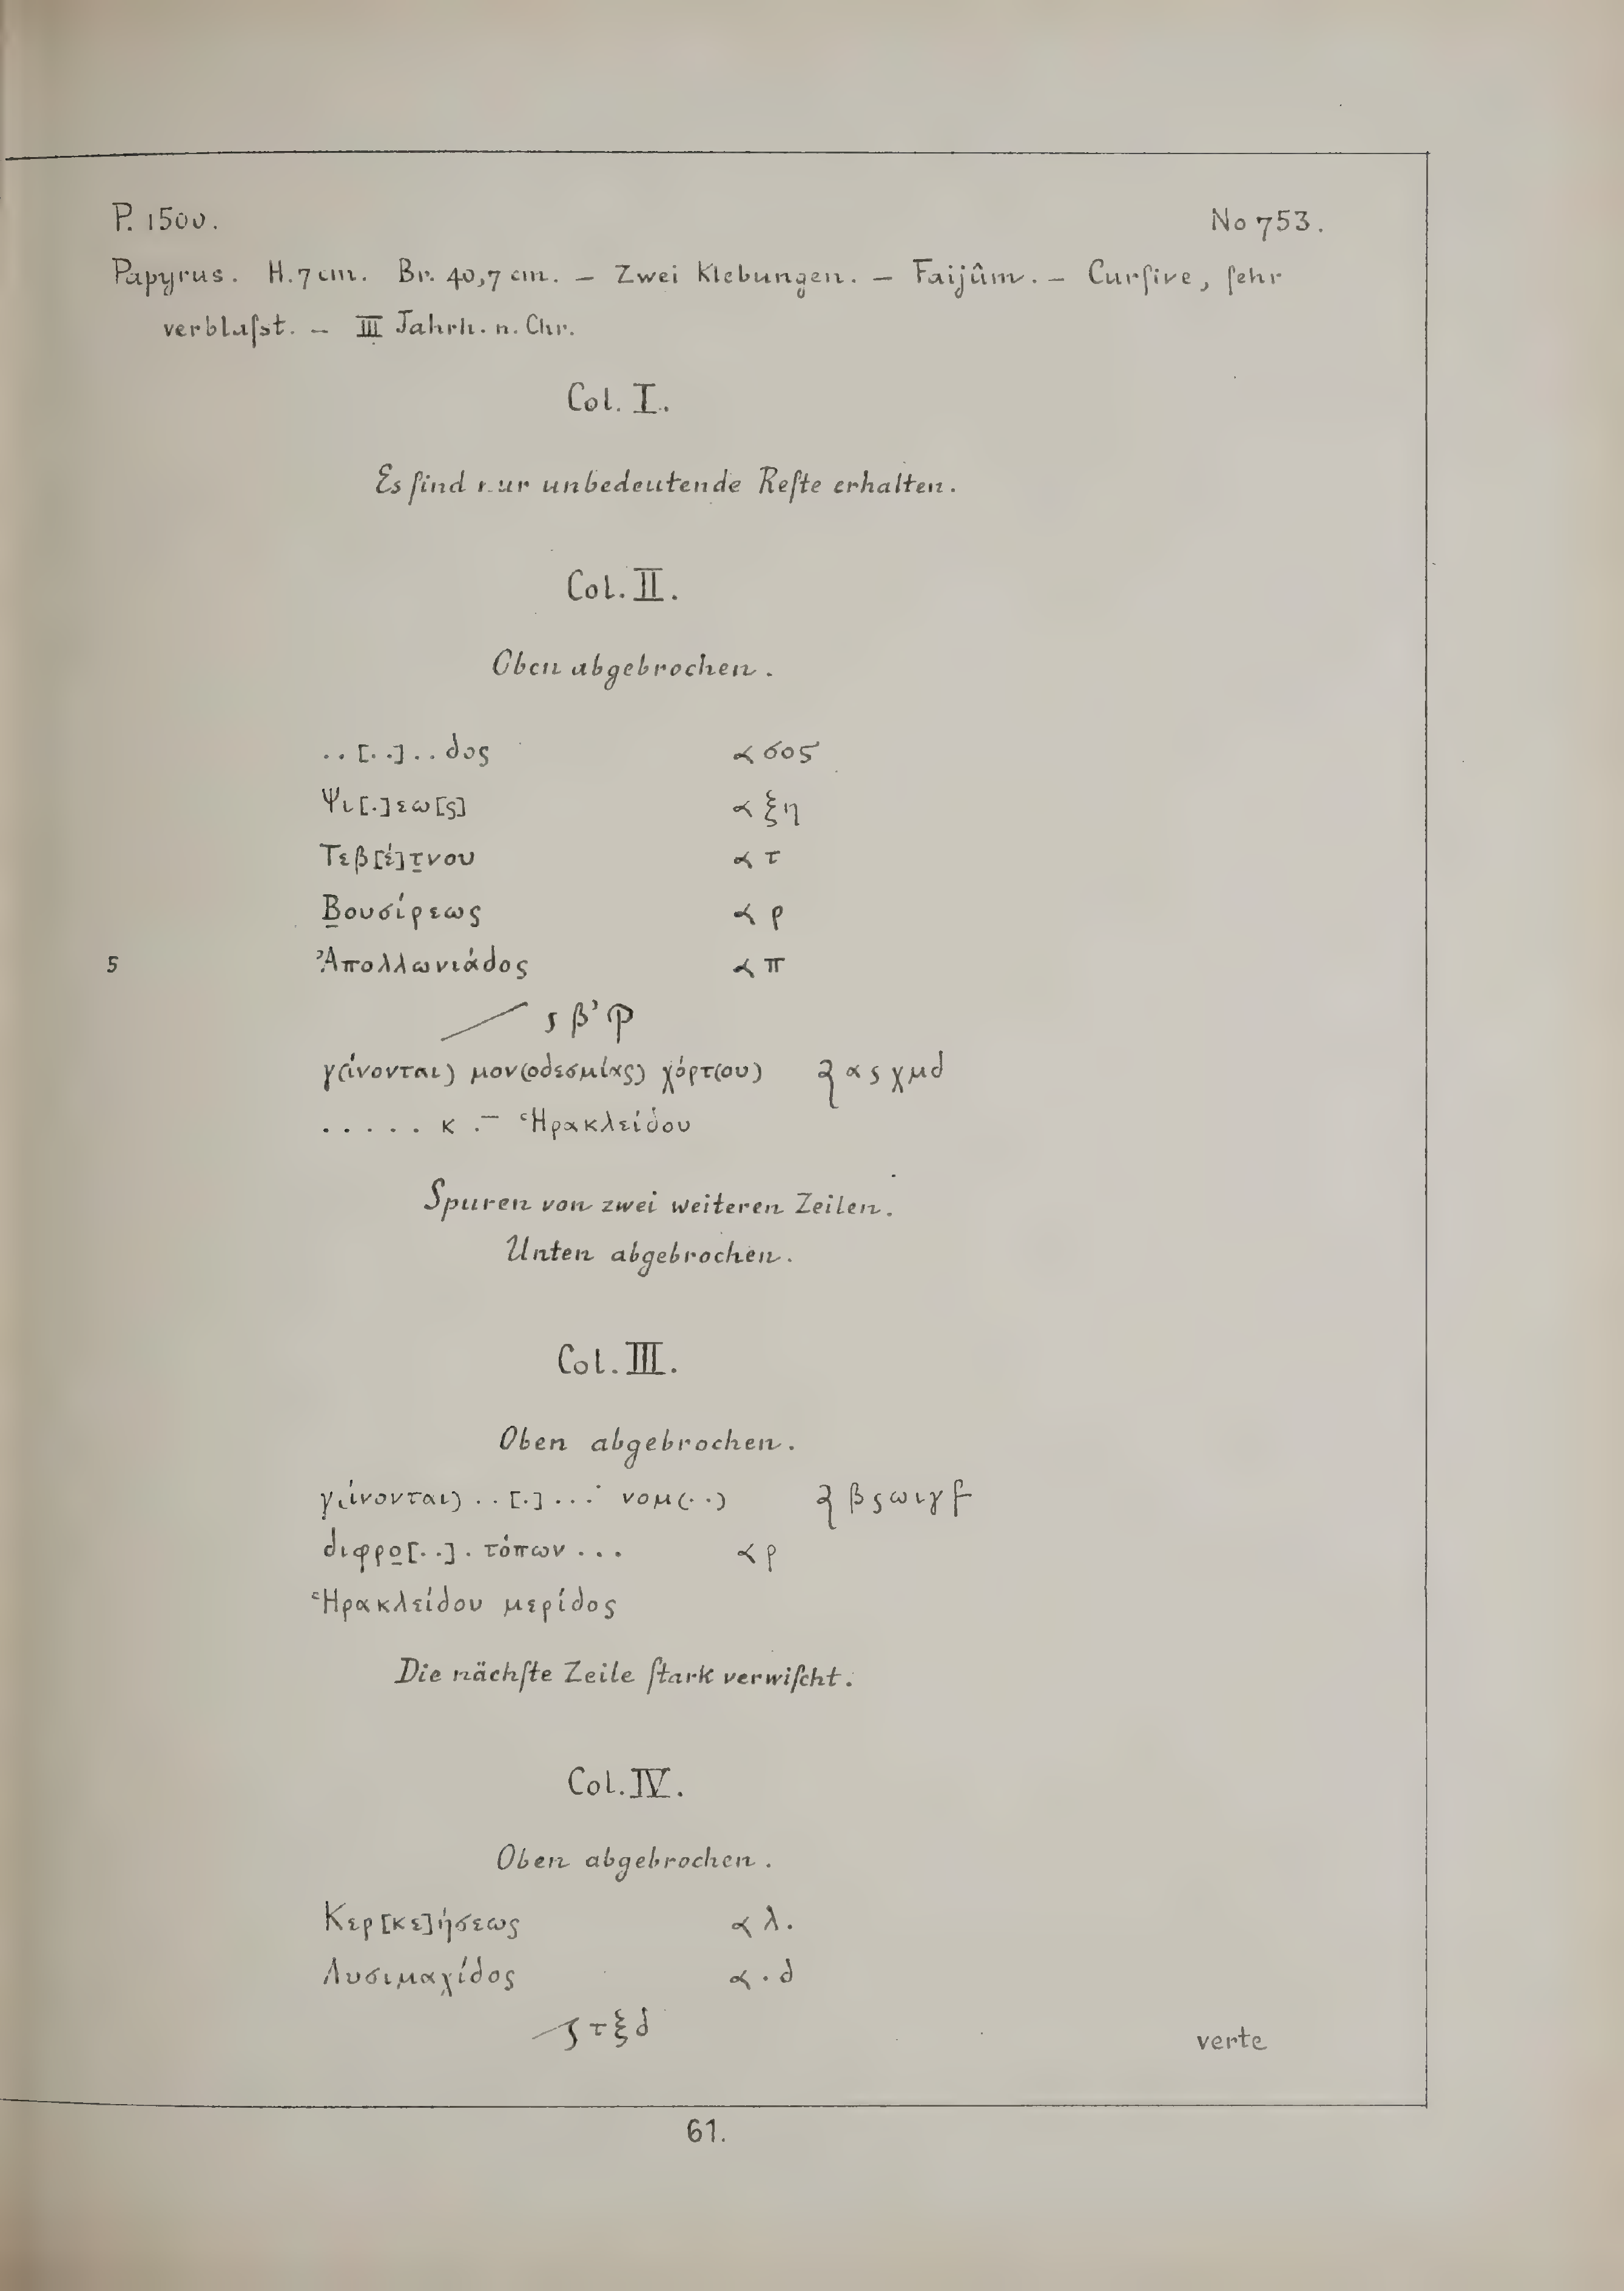 P. 1500. No 753.
Papyrus. H. 7 cm. Br. 40,7 cm. – Zwei Klebungen. – Faijûm. – Curſive, ſehr
verblaſst. – III Jahrh. n. Chr.
Col. I.
Es ſind nur unbedeutende Reſte erhalten.
Col. II.
Oben abgebrochen.
..[..]..δος α σος
Ψι[.]εω[ς] α ξη
Τεβ[έ]τ̣νου α τ
Β̣ουσίρεως α ρ
5 Ἀπολλωνιάδος α π
/ ϛ β’ ϼ
γ(ίνονται) μον(οδεσμίας) χόρτ(ου) α ϛ χμδ
..... κ .– Ἡρακλείδου
Spuren von zwei weiteren Zeilen.
Unten abgebrochen.
Col. III.
Oben abgebrochen.
γ(ίνονται) ..[.]... νομ(..) β ϛ ωιγ
διφρο̣[..]. τόπων ... α ρ
Ἡρακλείδου μερίδος
Die nächſte Zeile ſtark verwiſcht.
Col. IV.
Oben abgebrochen.
Κερ[κε]ήσεως α λ.
Λυσιμαχίδος α . δ
/ ϛ τξδ
verte
61.